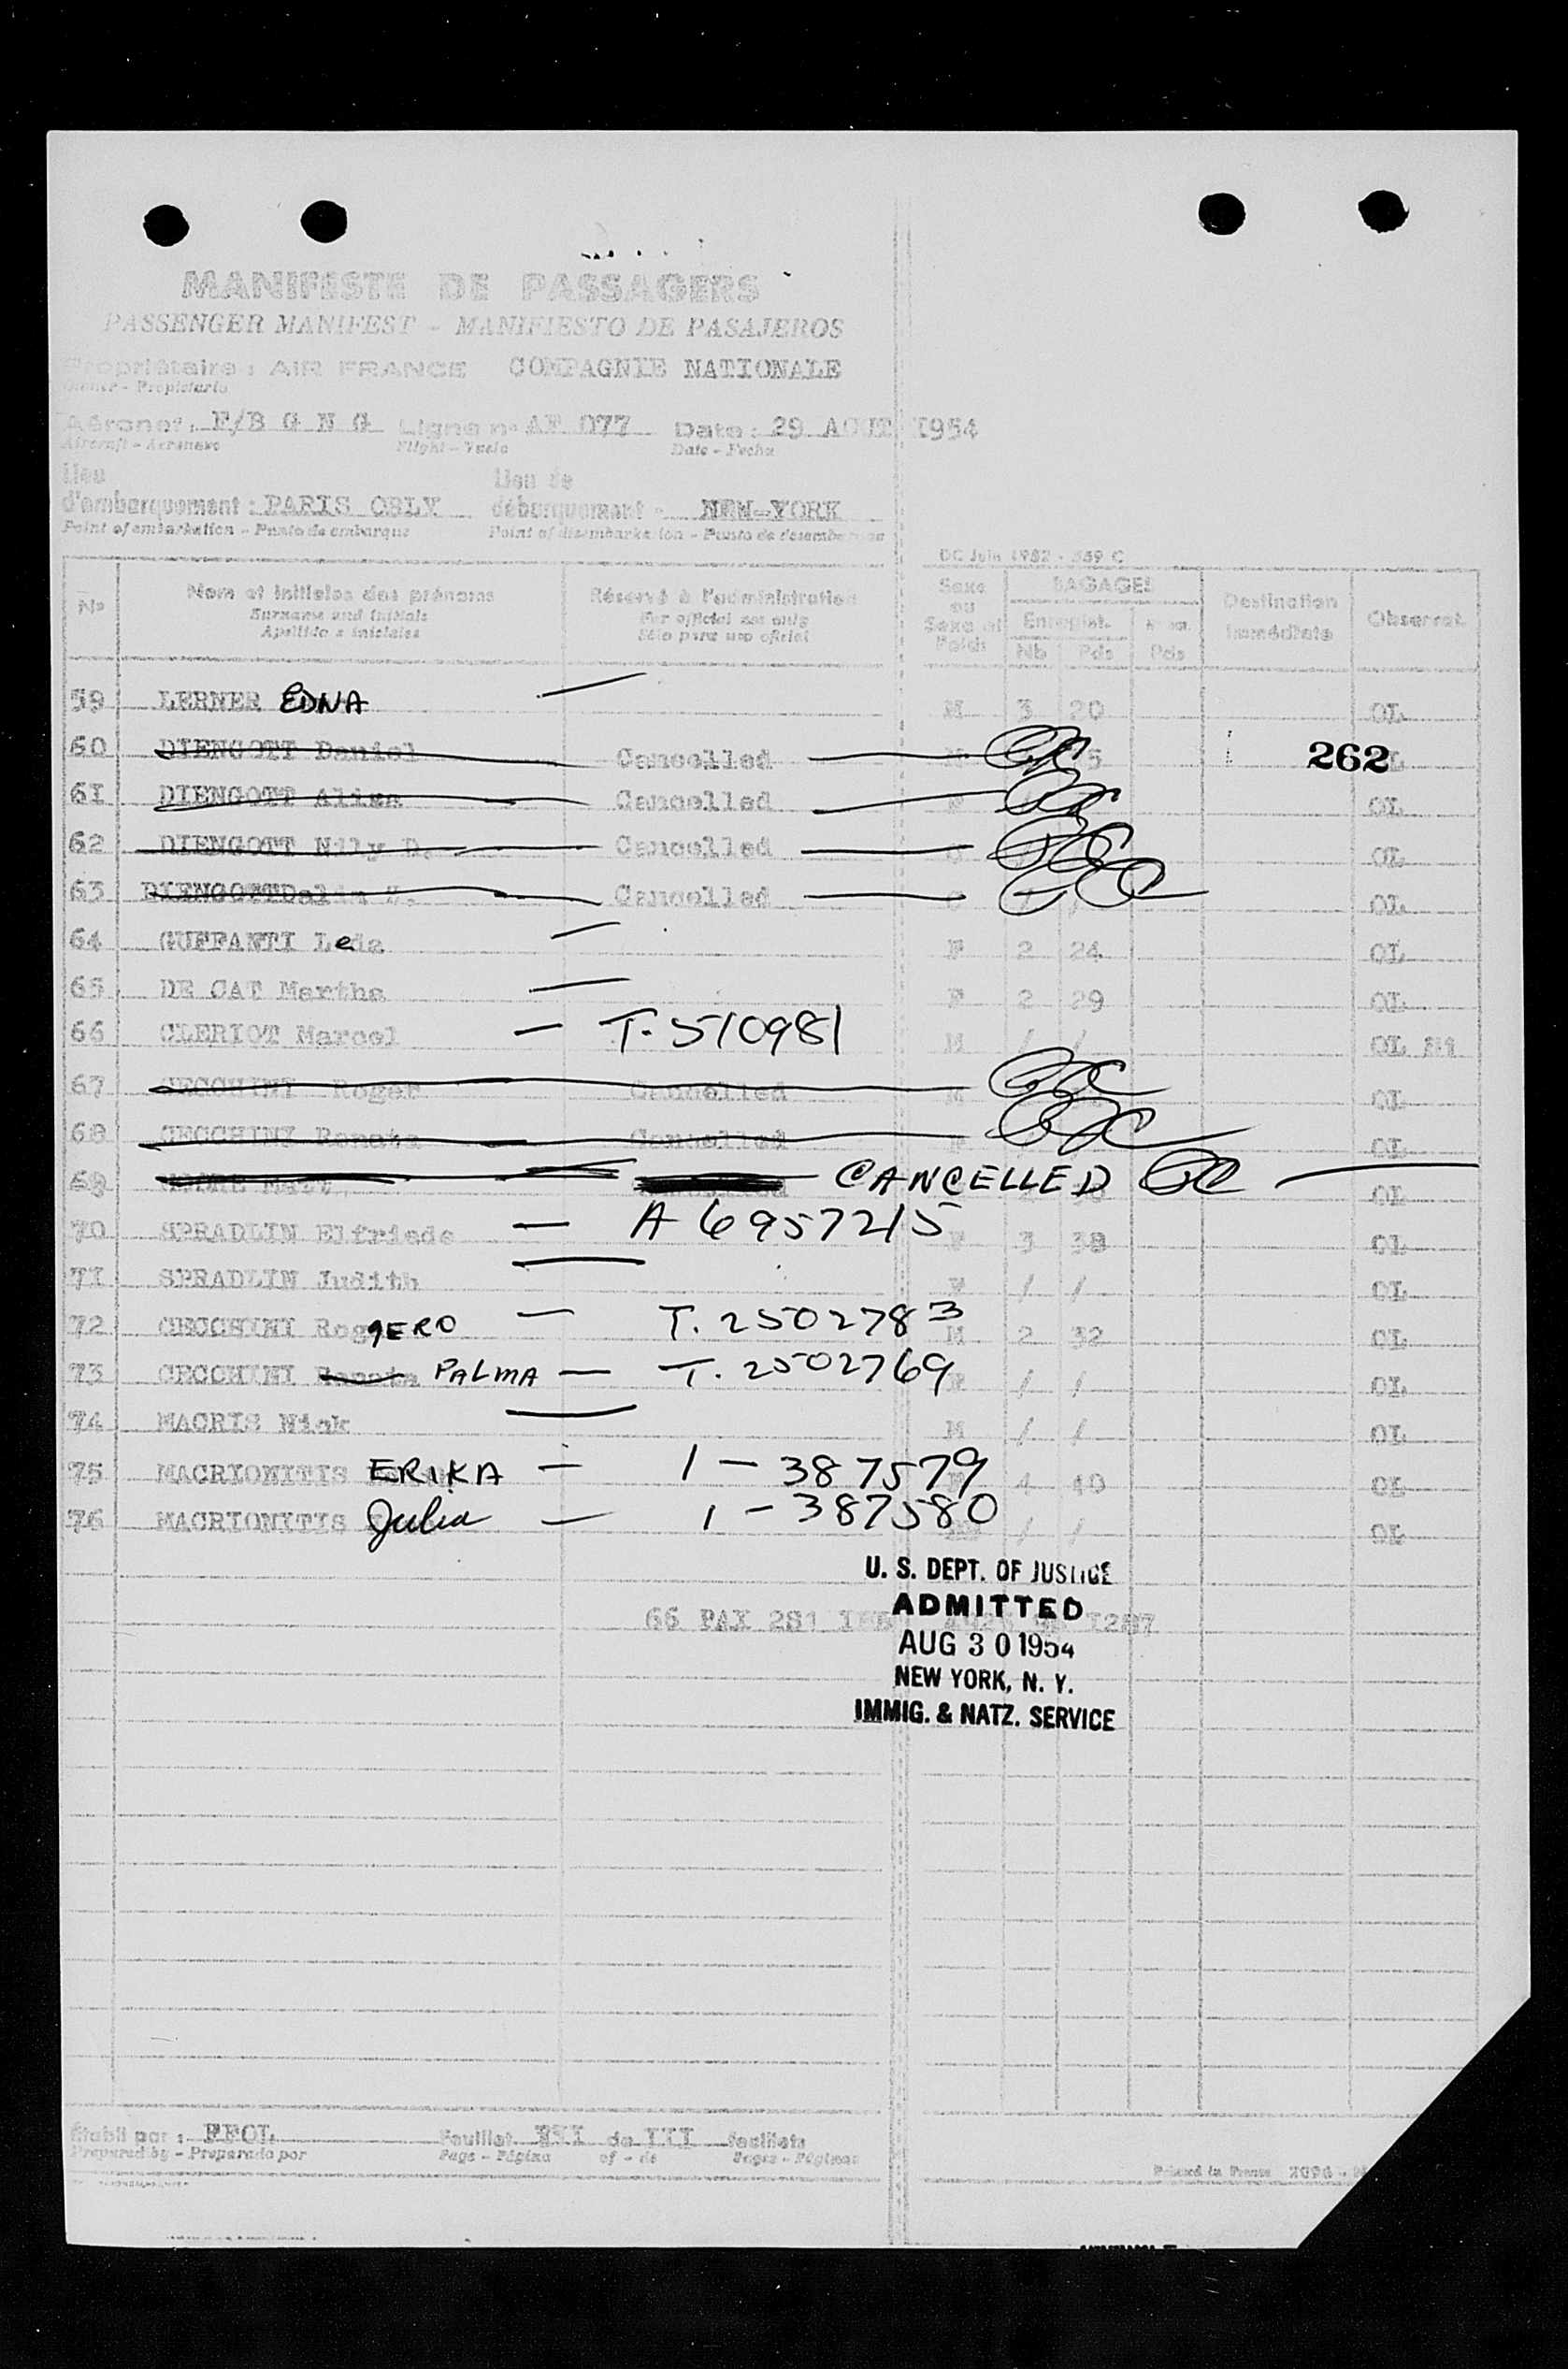 MANIFESTE DE PASSAGERS
PASSENGER MANIFEST - MANIFIESTO DE PASAJEROS
Propriétaire : AIR FRANCE COMPAGNIE NATIONALE
Owner - Propietario
Aéronef : F/B G N G Ligne n° AF 077 Date : 29 AOUT 1954
Aircraft - Aeronave Flight - Vuelo Date - Fecha
Lieu Lieu de
d'embarquement : PARIS ORLY débarquement - NEW-YORK
Point of embarkation - Punto de embarque Point of disembarkation - Punto de desembarque
DC Juin 1952 - 559 C
No Nom et initiales des prénoms Réservé à l'administration Sexe BAGAGES Destination Observat.
Surname and initials For official use only ou Enregist. immédiate
Apellido e iniciales Sólo para uso oficial Nb Pds Pds
59 LERNER EDNA M 3 20 OL
60 DIENGOTT Daniel Cancelled 262
61 DIENGOTT Aliza Cancelled F OL
62 DIENGOTT Nily D. Cancelled OL
63 DIENGOTT Cancelled OL
64 GUFFANTI Leda F 2 24 OL
65 DE CAT Martha F 2 29 OL
66 CLERIOT Marcel T-510981 M / / OL
67 CECCHINI Roger Cancelled M OL
68 CECCHINI Renata Cancelled OL
69 CANCELLED OL
70 SPRADLIN Elfriede A 6957215 F 3 38 OL
71 SPRADLIN Judith F / / OL
72 CECCHINI RogGERO T. 2502783 M 2 32 OL
73 CECCHINI Renata PALMA T. 2502769 F / / OL
74 MACRIS Nick M / / OL
75 MACRIONITIS ERIKA 1-387579 4 40 OL
76 MACRIONITIS Julia 1-387580 / / OL
U. S. DEPT. OF JUSTICE
66 PAX 281 ADMITTED 1287
AUG 30 1954
NEW YORK, N. Y.
IMMIG. & NATZ. SERVICE
Etabli par : Feuillet III de III feuillets
Prepared by - Preparado por Page - Página of - de Pages - Páginas
Printed in France